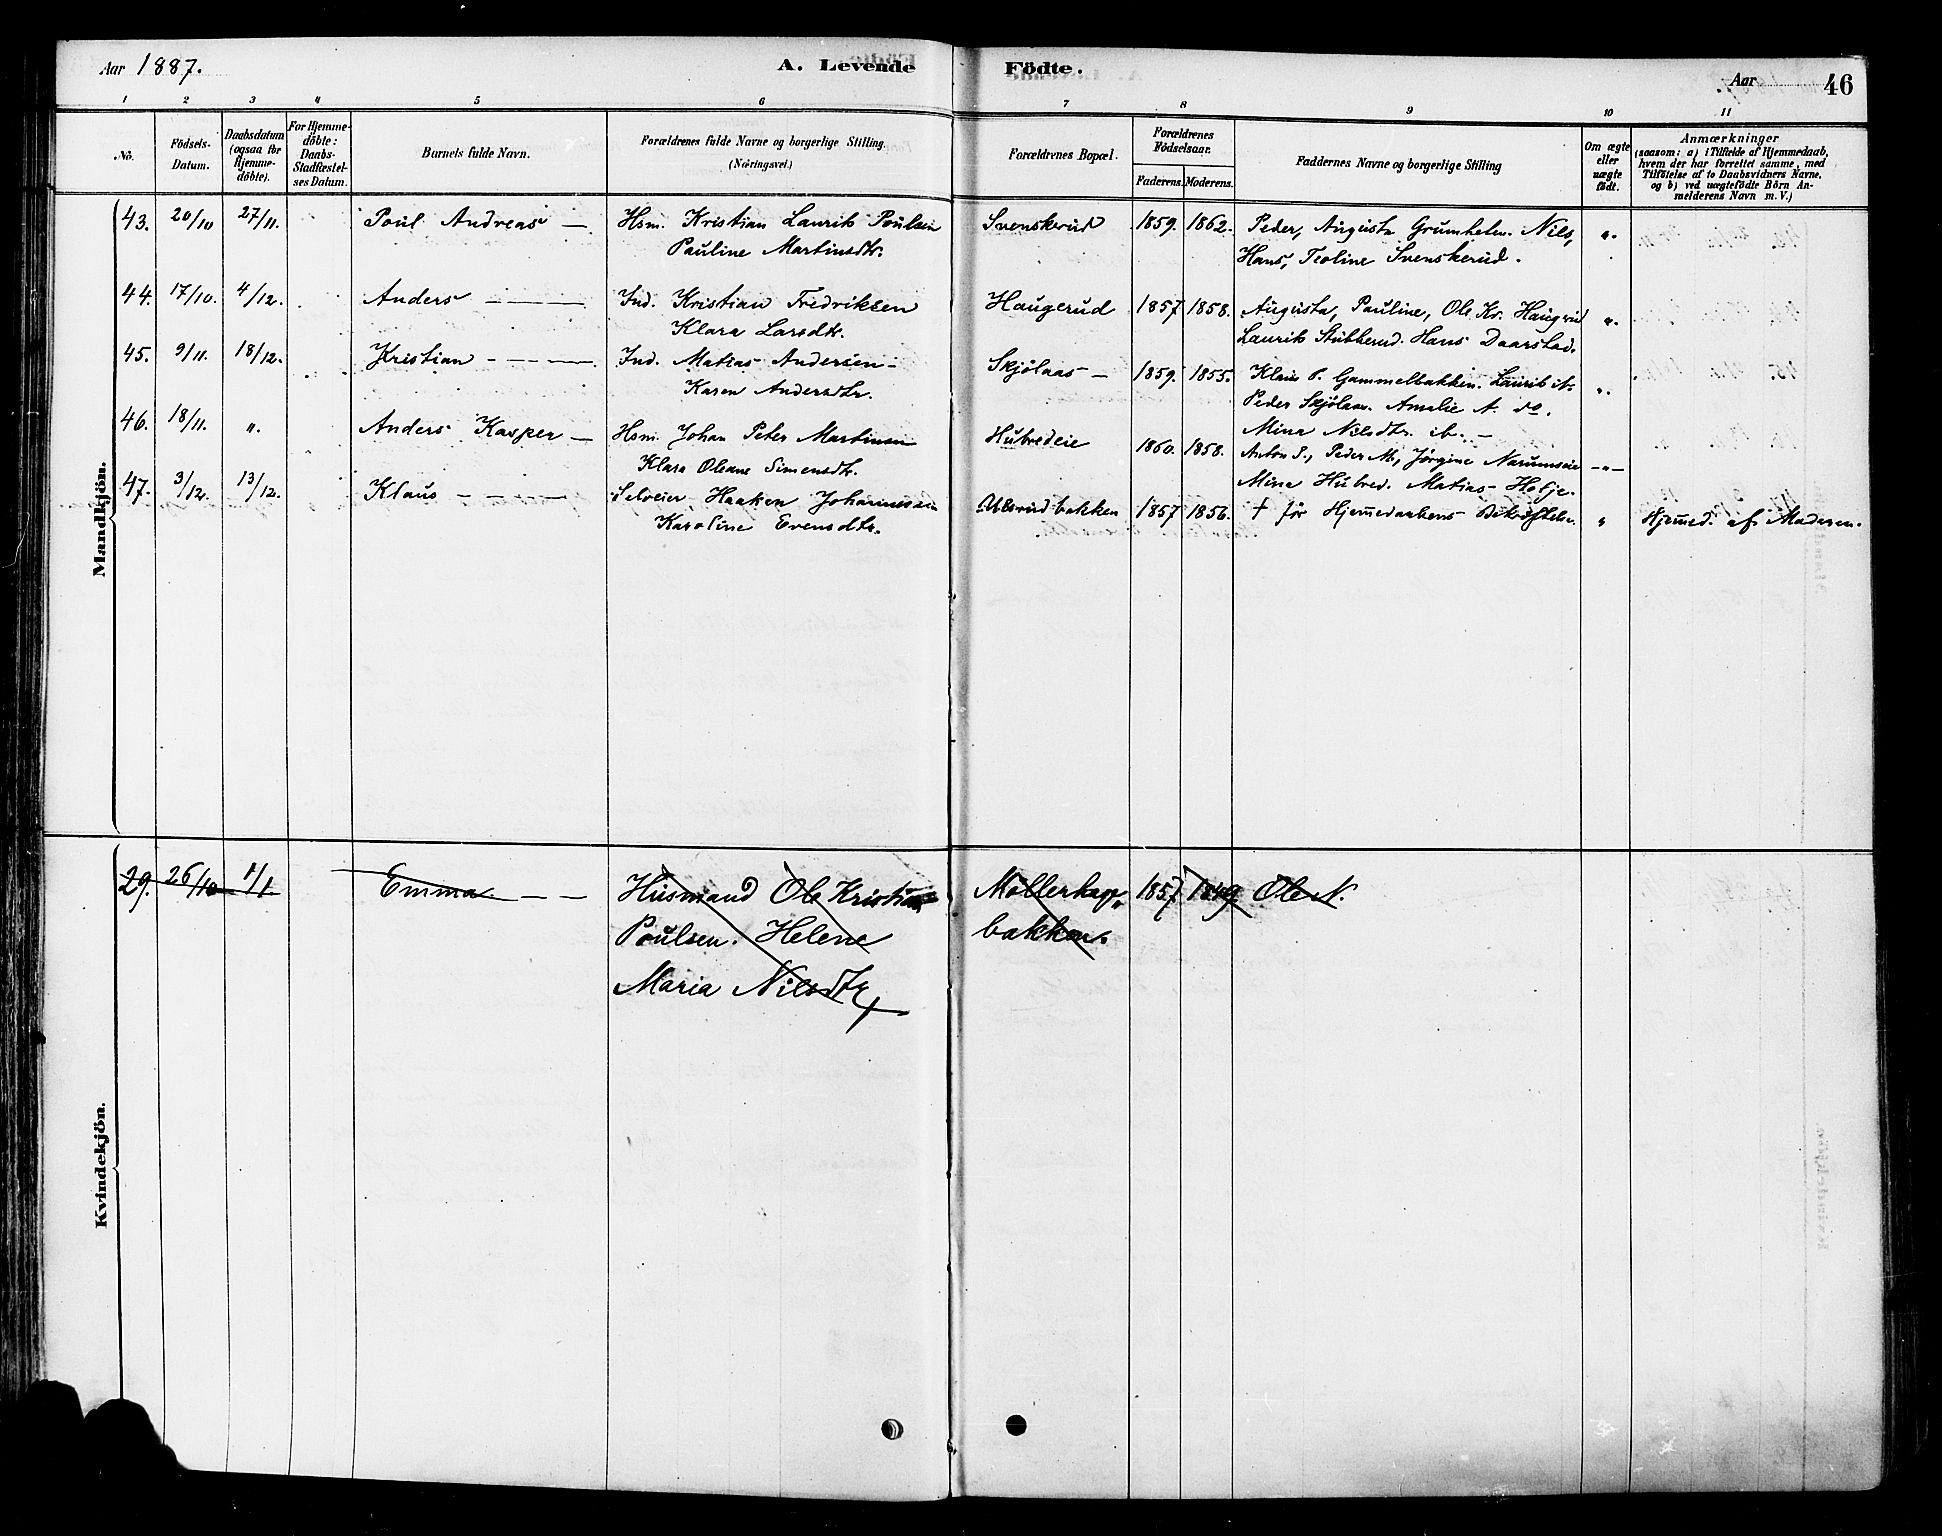 Aar 1887.
A. Levende Födte.
Aar
46
1 2 3 4 5 6 7 8 9 10 11
No.
Födsels-
Datum.
Daabsdatum
(ogsaa for
Hjemme-
döbte).
For Hjemme-
döbte:
Daabs-
Stadfæstel-
ses Datum.
Barnets fulde Navn.
Forældrenes fulde Navne og borgerlige Stilling.
(Näringsvei.)
Forældrenes Bopæl.
Forældrenes
Födselsaar.
Faderens. Moderens.
Faddernes Navne og borgerlige Stilling
Om ægte
eller
uægte
födt.
Anmærkninger
(saasom: a) i Tilfælde af Hjemmedaab,
hvem der har forrettet samme, med
Tilföielse af to Daabsvidners Navne,
og b) ved uægtefödte Börn An-
melderens Navn m. V.)
Mandkjön.
43. 20/10 27/11. Poul Andreas — Hsm. Kristian Laurits Poulsen Svenskerud 1859. 1862. Peder, Augusta Grumhelen. Nils, „.
Pauline Martinsdtr. Hans, Teoline Svenskerud.
44. 17/10. 4/12. Anders — Ind. Kristian Fredriksen Haugerud 1857 1858. Augusta, Pauline, Ole Kr. Haugrud „.
Klara Larsdtr. Laurits Stubberud. Hans Daarstad.
45. 9/11. 18/12. Kristian — Ind. Matias Andersen — Skjölaas — 1859. 1855. Klaus P. Gammelbakken. Laurits ib. „.
Karen Andersdtr. Peder Skjölaas. Amalie A. do.
Mina Nilsdtr. ib. —
46. 18/11. „. Anders Kasper — Hsm. Johan Peter Martinsen Hubredeie 1860. 1858. Anton S., Peder M., Jørgine Narumseie —„—
Klara Oleane Simensdtr. Mina Hubred. Matias Høtje.
47. 3/12. 13/12. Klaus — Selveier Haaken Johannessen Ulsrudbakken 1857 1856. † før Hjemmedaabens Bekræftelse. „ Hjemmed. af Moderen.
Karoline Evensdtr.
Kvindekjön.
29. 26/10 1/1. Emma — — Husmand Ole Kristian Möllerhag„ 1857 1849 Ole N.
Poulsen. Helene bakken.
Maria Nilsdtr